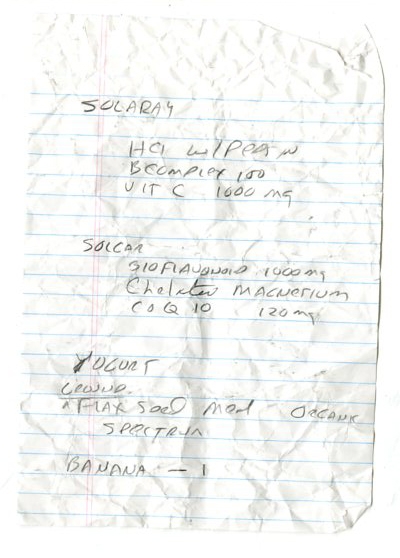 SOLARAY
HCl w/PEPSIN
B COMPLEX 100
VIT C 1000 mg
SOLGAR
BIOFLAVONOID 1000 mg
Chelated MAGNESIUM
CO Q 10 120 mg
YOGURT
GROUND
^ FLAX SEED MEAL ORGANIC
SPECTRUM
BANANA — 1